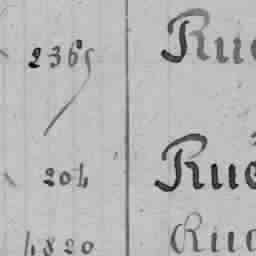 2365 Rue
204 Rue
4820 Rue